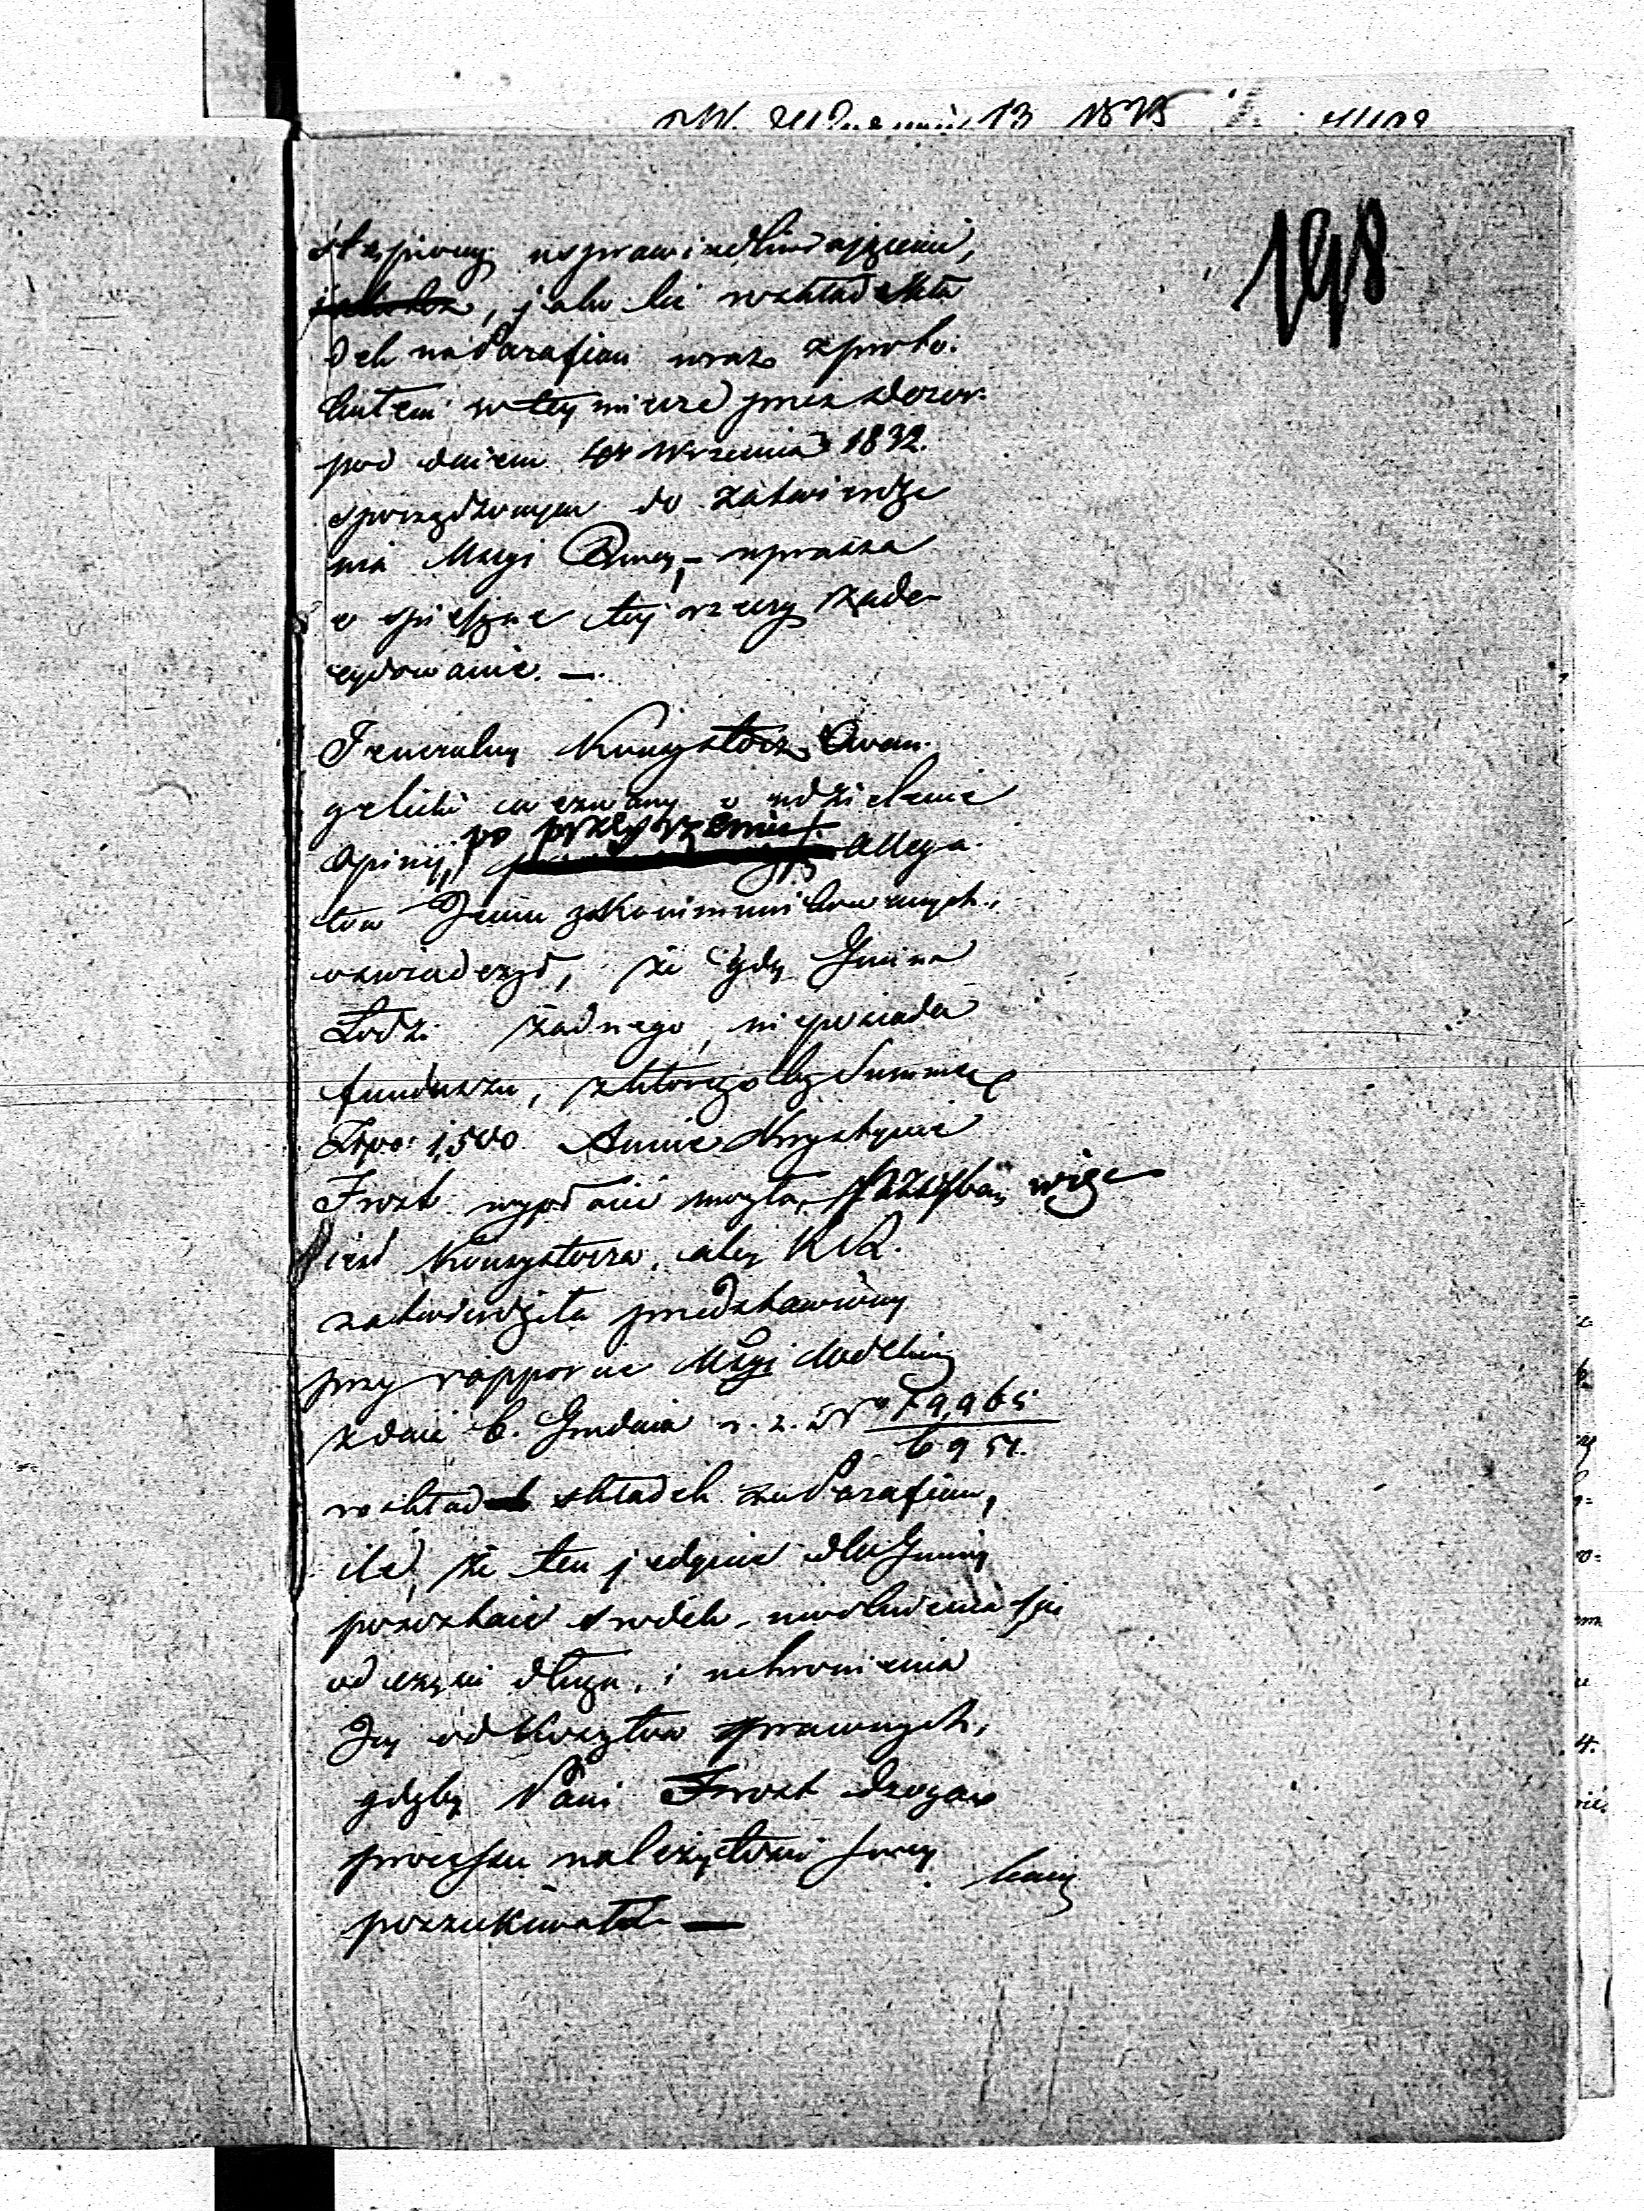 198
stępiony usprawiedliwiającemi,
, jako też rozkład skła
dek na Parafian wraz z proto-
kułem w tey mierze przez dozor
pod dniem Września 1832.
sporządzonym do zatwierdze
nia Mszyi uprasza
o spieszne tej rzeczy zade-
cydowanie. —
Jeneralny Konsystorz Ewan-
gelicki wezwany o udzielenie
Opinij, po przejrzeniu allega-
tow Jemu zakommunikowanych,
oswiadczył, że gdy Gmina
Łodz żadnego nieposiada
funduszu, z ktoregoby Summę
Złpo: 1,500 Annie Krystynie
Frost wypłacić mogła, więc
iest Konsystorza, aby KR.
zatwierdziła przedstawiony
przy rapporcie
z dnia 6. Grudnia r. z. No 79,965
6951.
rozkład składek na Parafian,
ile, że ten jedynie dla Gminy
pozostaie srodek uwolnienia się
od części długu, i uchronienia
Jey od Kosztow prawnych,
gdyby Pani Frost drogą
processu należytości swey
poszukiwała —